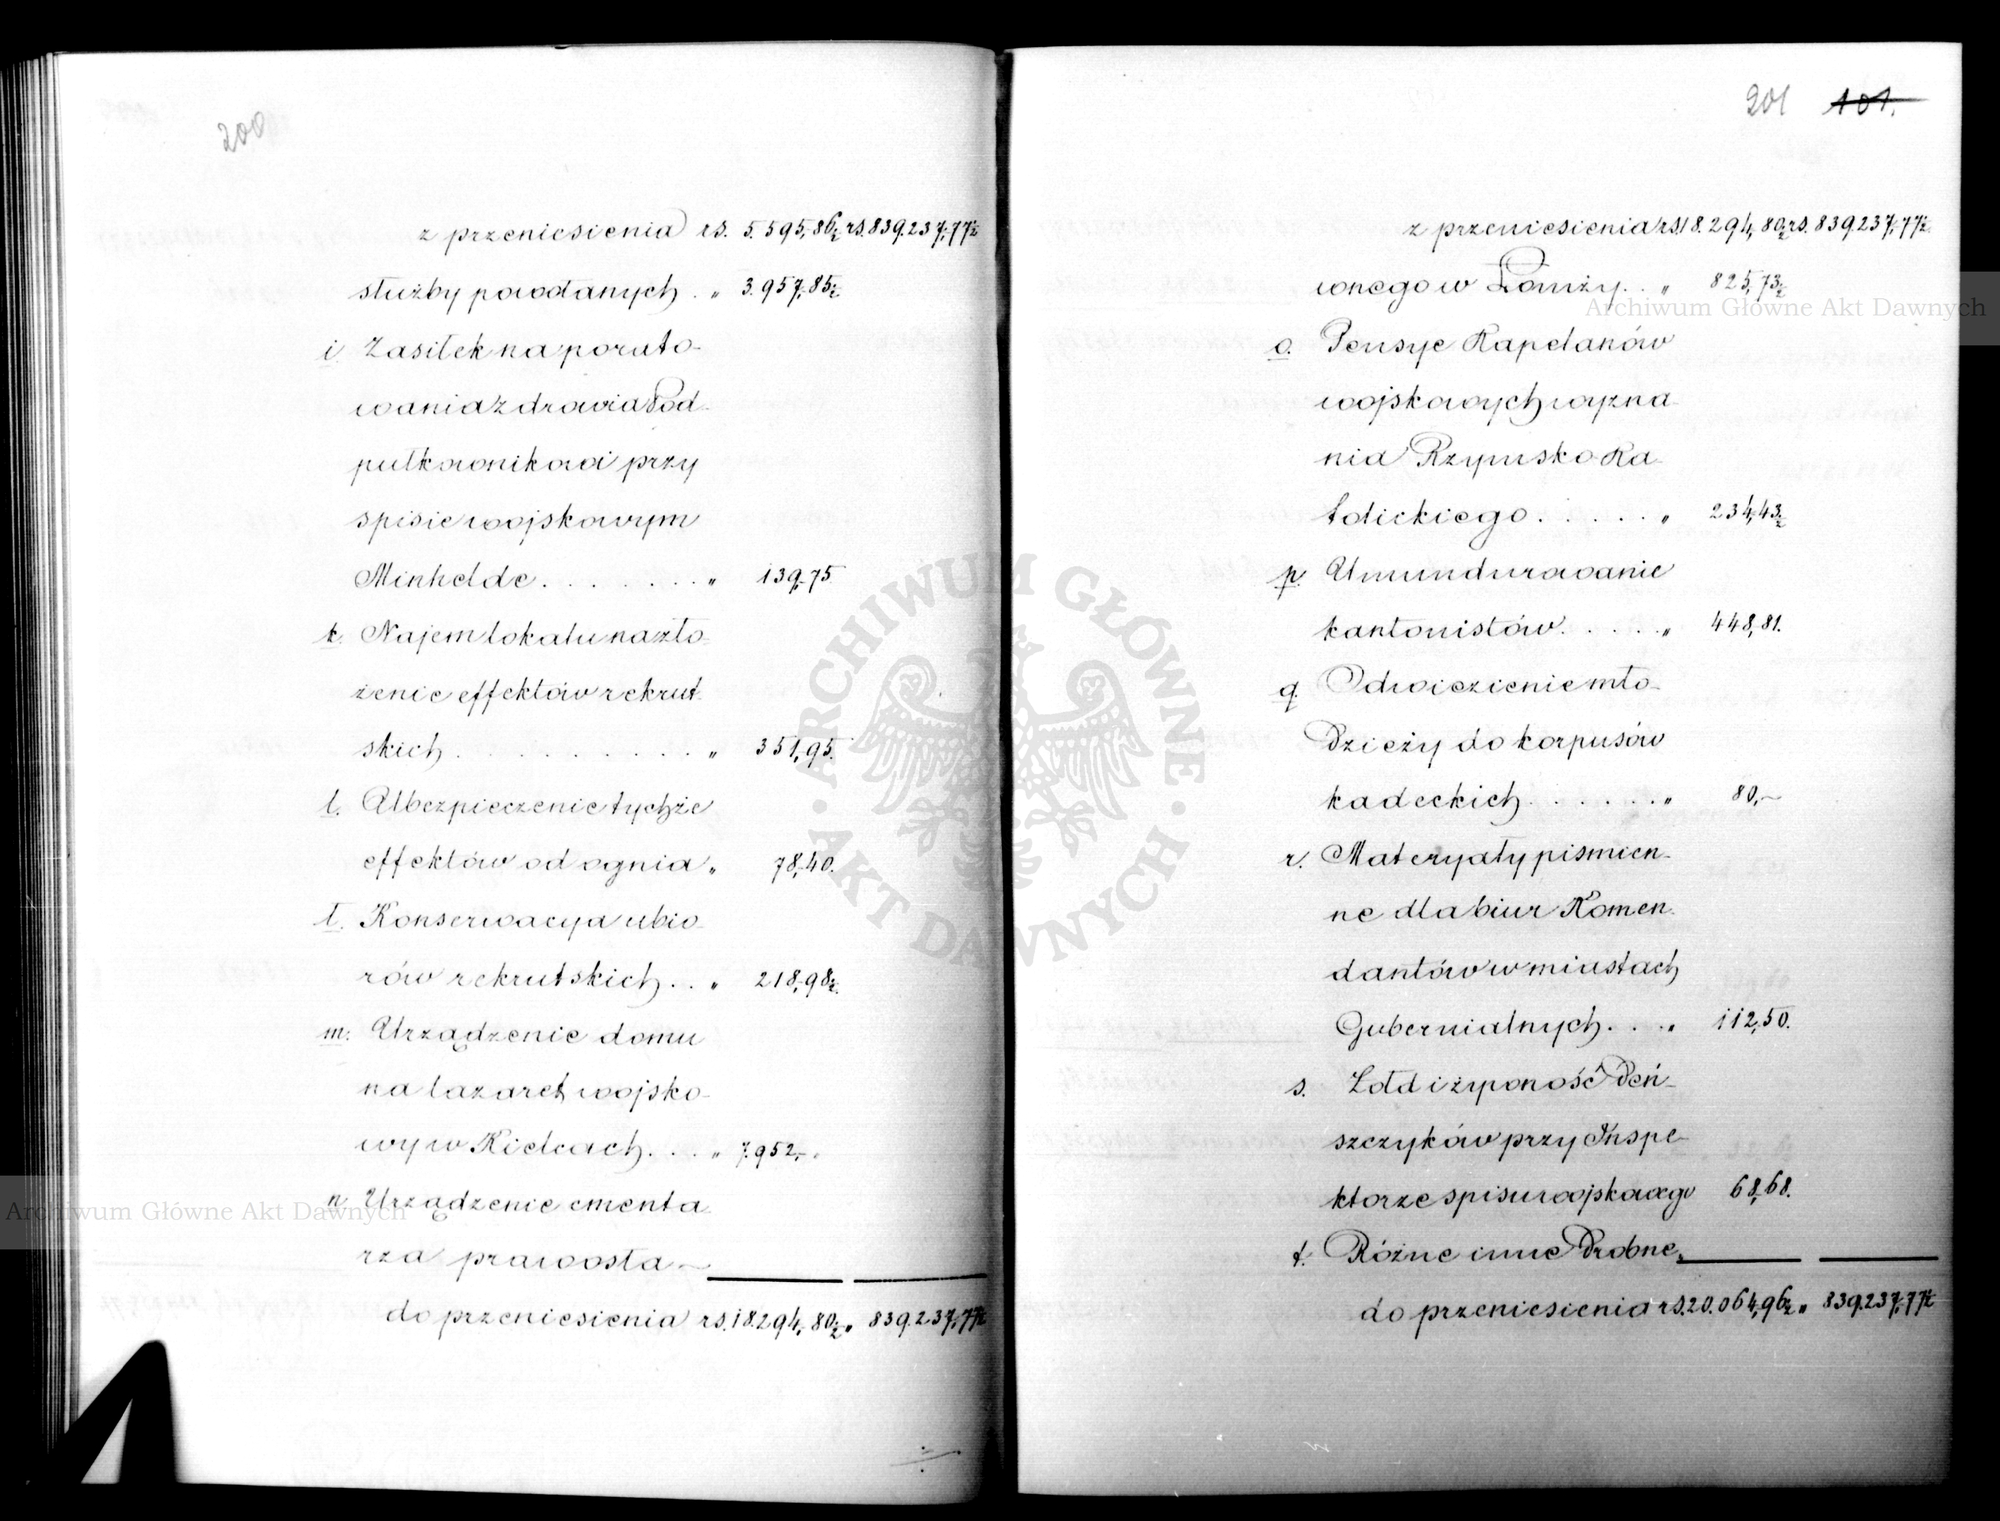 200
z przeniesienia rs. 5.595,86½ rs. 839.237,77½
służby powołanych . „ 3.957,85½
i. Zasiłek na porato-
wania zdrowia Pod-
pułkownikowi przy
spisie wojskowym
Minhelde . . . . . . . „ 139,75
k. Najem lokalu na zło-
żenie effektów rekrut-
skich . . . . . . . . . „ 351,95.
l. Ubezpieczenie tychże
effektów od ognia „ 78,40.
ł. Konserwacya ubio-
rów rekrutskich . . „ 218,98½.
m. Urządzenie domu
na lazaret wojsko-
wy w Kielcach . . . „ 7.952,-.
n. Urządzenie cmenta-
rza prawosła-
do przeniesienia rs. 18.294,80½ „ 839.237,77½
201 101.
z przeniesienia rs. 18.294,80½ rs. 839.237,77½.
wnego w Łomży . . „ 825,73½
o. Pensye Kapelanów
wojskowych wyzna-
nia Rzymsko Ka-
tolickiego . . . . . „ 234,43½
p. Umundurowanie
kantonistów . . . . . „ 448,81.
q. Odwiezienie mło-
dzieży do korpusów
kadeckich . . . . . . „ 80,-
r. Materyały piśmien-
ne dla biur Komen-
dantów w miastach
Gubernialnych . . . „ 112,50.
s. Żołd i żywność Deń-
szczyków przy Inspe-
ktorze spisu wojskowego 68,68.
t. Różne inne drobne
do przeniesienia rs. 20.064,96½ „ 839.237,77½
ARCHIWUM GŁÓWNE AKT DAWNYCH
Archiwum Główne Akt Dawnych
Archiwum Główne Akt Dawnych